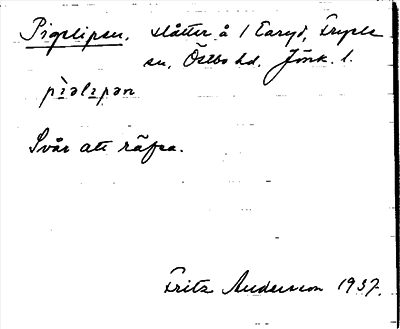 Pigslipen. slåtter å 1 Earyd, Tryele
sn. Östbo hd. Jönk. l.
pìəlɩpən
Svår att räfsa.
Fritz Andersson 1937.